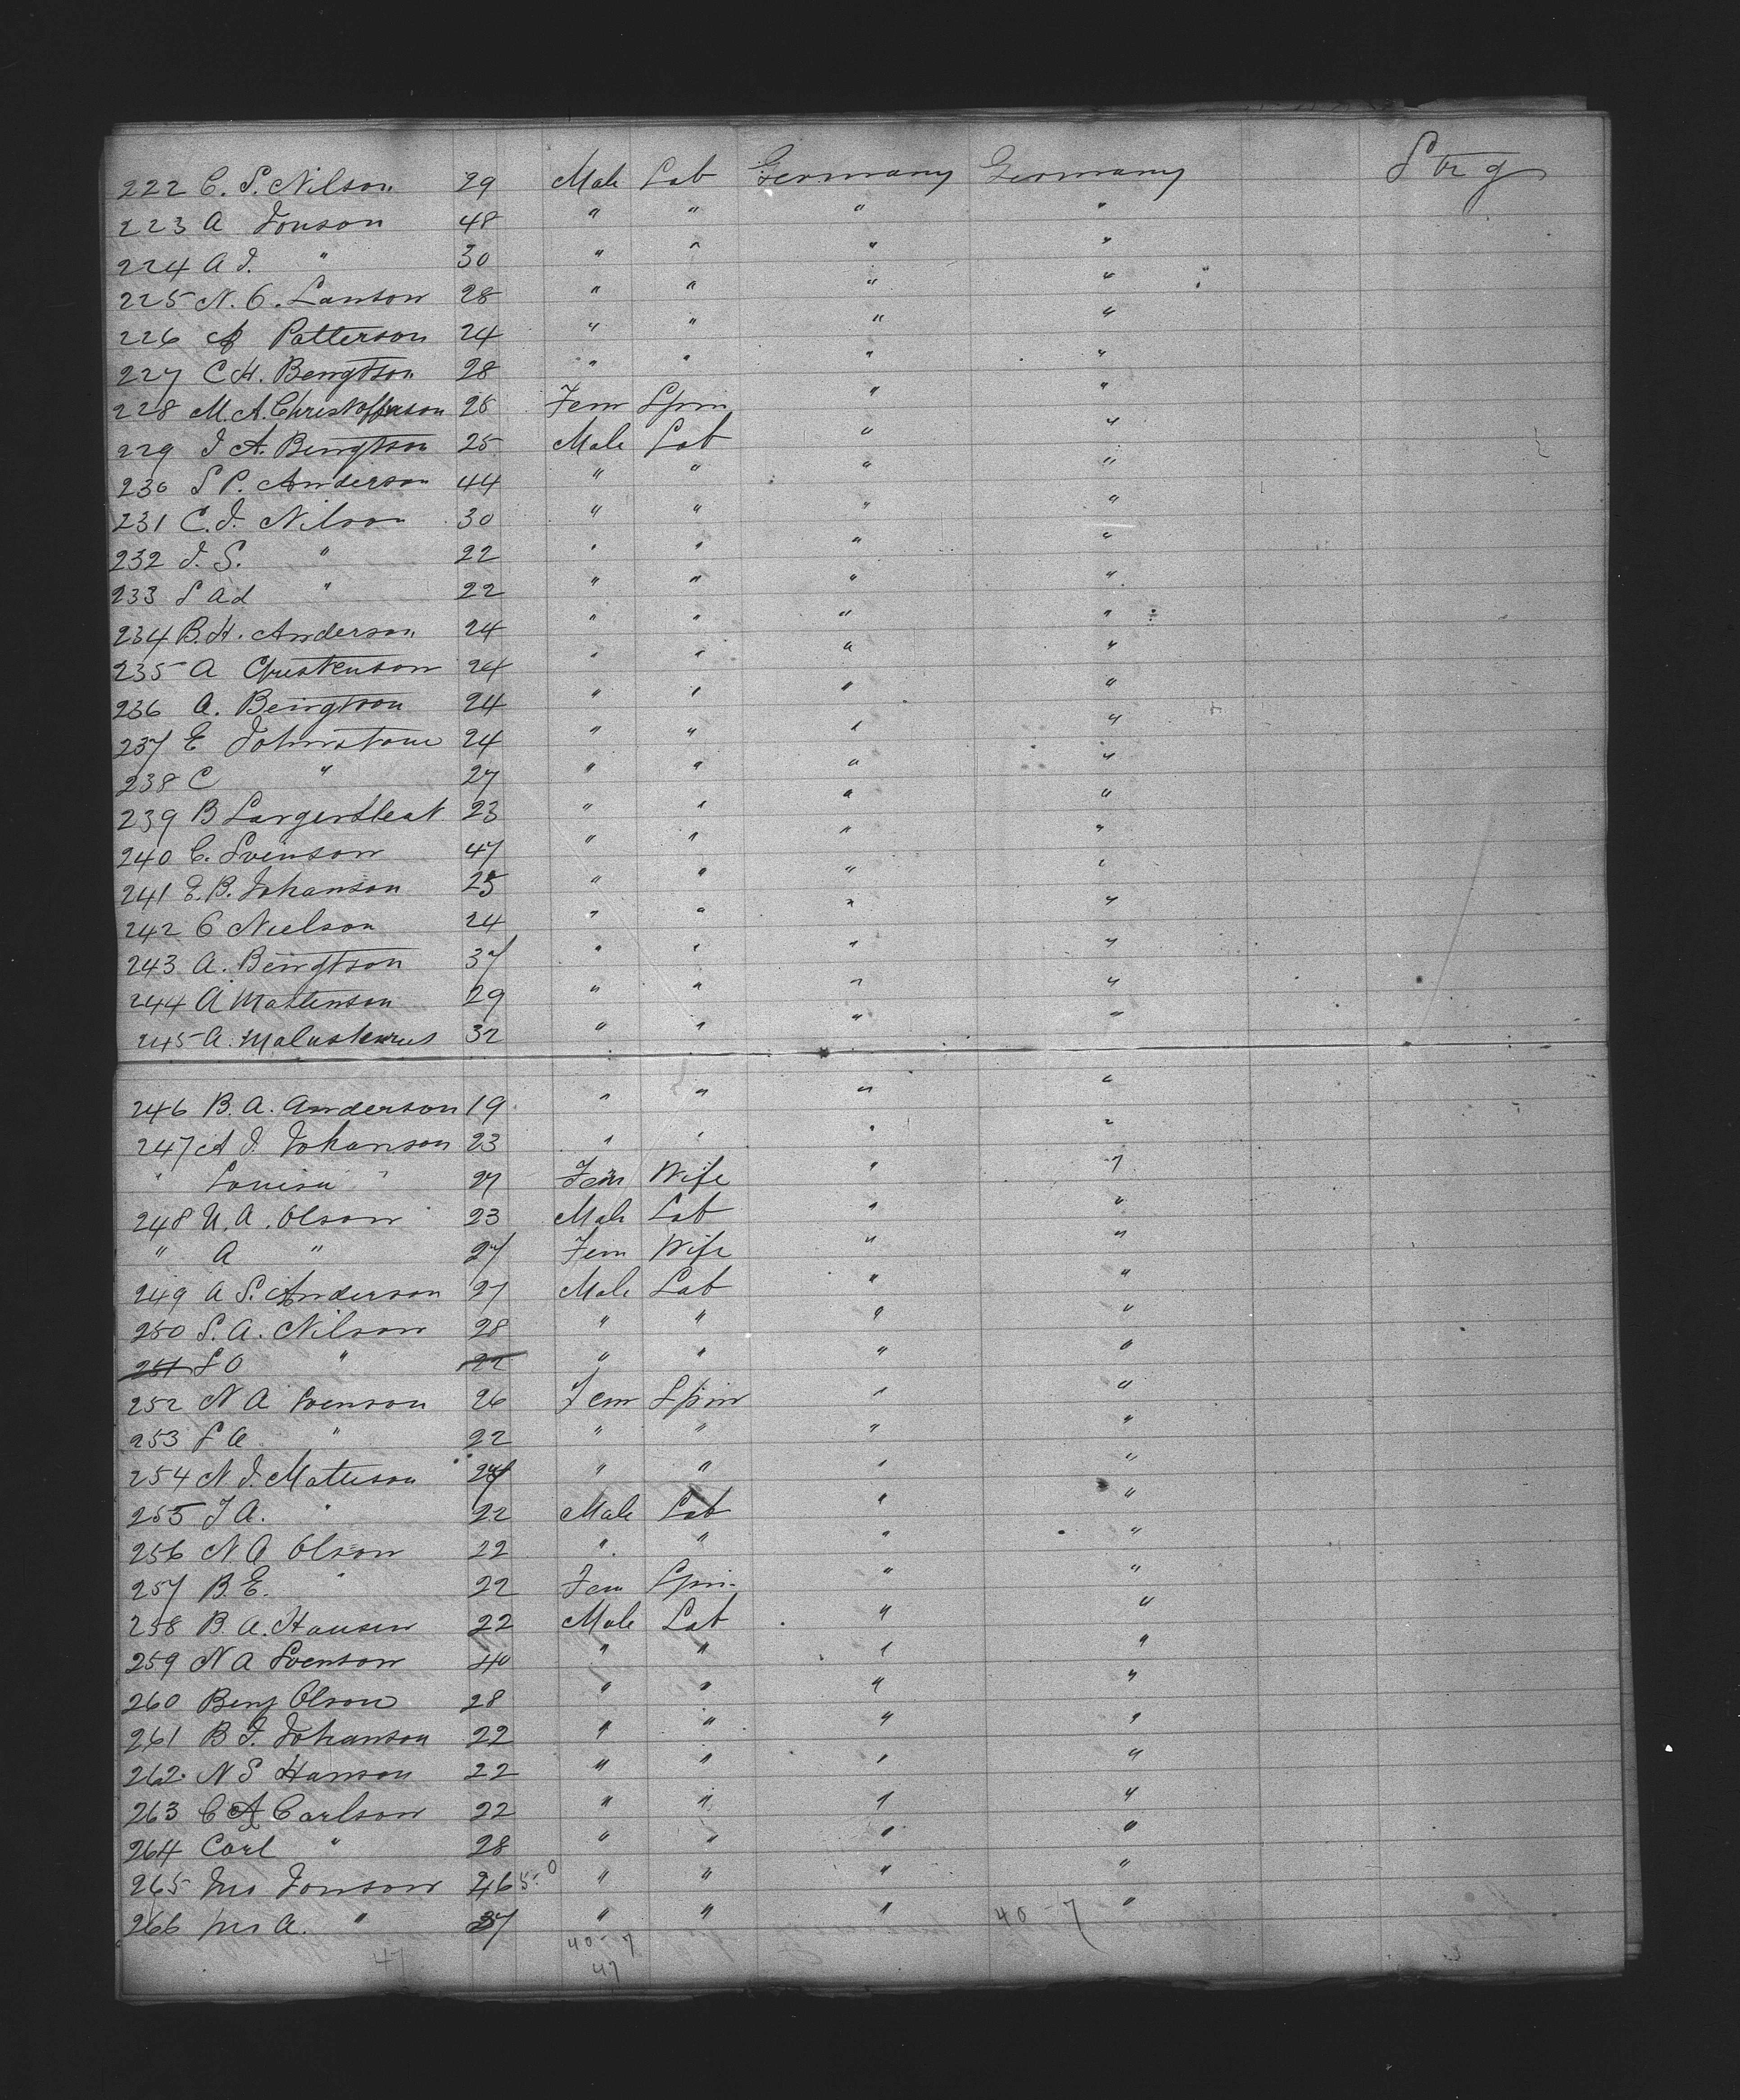 222 C. S. Nilson 29 Male Lab Germany Germany Strg
223 A Jonson 48 " " " "
224 A J. " 30 " " " "
225 N. C. Lanson 28 " " " "
226 A Patterson 24 " " " "
227 C H. Bengtson 28 " " " "
228 M. A. Christofferson 28 Fem Spin " "
229 J A. Bengtson 25 Male Lab " "
230 S P. Anderson 44 " " " "
231 C. J. Nilson 30 " " " "
232 J. S. " 22 " " " "
233 S Ad " 22 " " " "
234 B. H. Anderson 24 " " " "
235 A Christenson 24 " " " "
236 A. Bengtson 24 " " " "
237 E Johnstone 24 " " " "
238 C " 27 " " " "
239 B 23 " " " "
240 C. Svenson 47 " " " "
241 E. B. Johanson 25 " " " "
242 C Nielson 24 " " " "
243 A. Bengtson 37 " " " "
244 A Mattenson 29 " " " "
245 A. 32 " " " "
246 B. A. Anderson 19 " " " "
247 A J. Johanson 23 " " " "
" Louisa " 27 Fem Wife " "
248 N. A. Olson 23 Male Lab " "
" A " 27 Fem Wife " "
249 A S. Anderson 27 Male Lab " "
250 S. A. Nilson 28 " " " "
251 S O " 22 " " " "
252 N A Svenson 26 Fem Spin " "
253 S A " 22 " " " "
254 N. J. Matteson 24 " " " "
255 J A. " 22 Male Lab " "
256 N. A Olson 22 " " " "
257 B. E. " 22 Fem Spin " "
258 B. A. Hansen 22 Male Lab " "
259 N A Svenson 40 " " " "
260 Benj Olson 28 " " " "
261 B J. Johanson 22 " " " "
262 N S Hanson 22 " " " "
263 C A Carlson 22 " " " "
264 Carl " 28 " " " "
265 Jns Jonson 46 5-0 " " " "
266 Jns A. " 37 " " " "
40-7 40-7
47 47